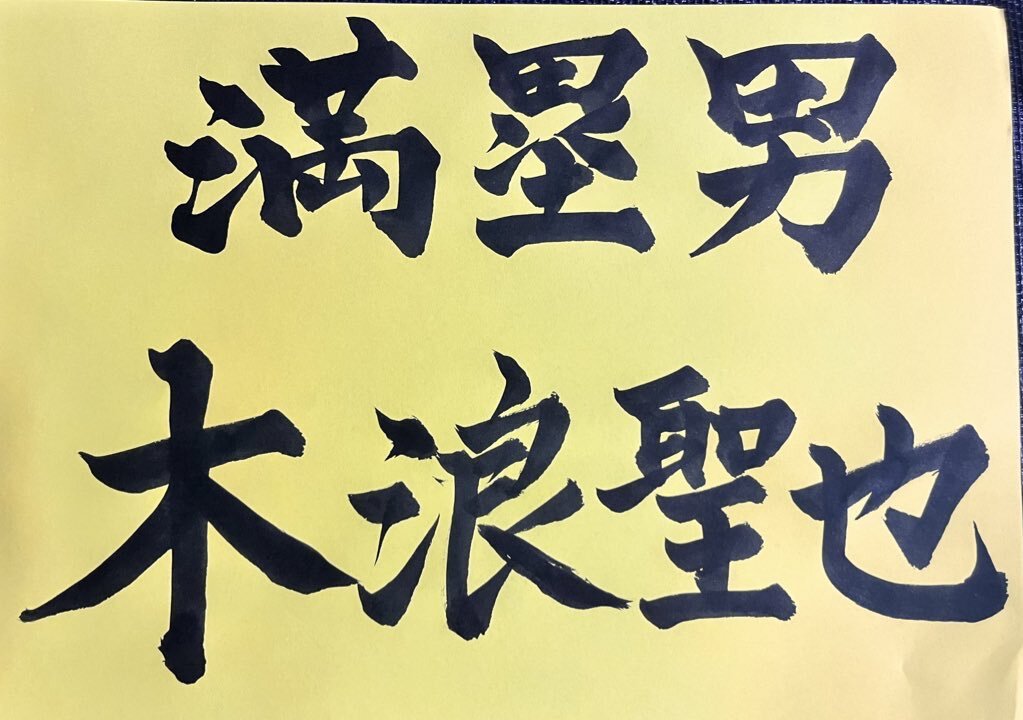 満塁男
木浪聖也